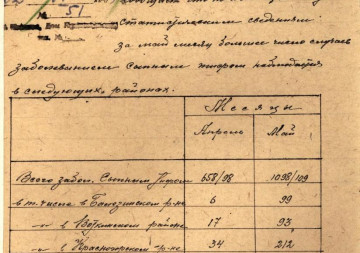 51
статистическим сведениям:
за май месяц большее число случаев
заболеванием сыпным тифом наблюдается
в следующих районах.
Месяцы
Апрель Май
Всего забол. Сыпным Тифом 658/98 1098/109
в т. числе в Балезинском р-не 6 99
-"- в Воткинском районе 17 93
-"- в Красногорском р-не 34 212